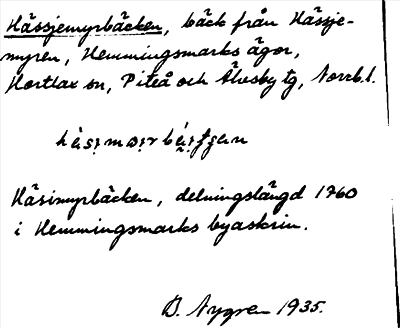 Hässjemyrbäcken, bäck från Hässje-
myren, Hemmingsmarks ägor,
Hortlax sn, Piteå och Älvsby tg, Norrb. l.
Häsimyrbäcken, delningslängd 1760
i Hemmingsmarks byaskrin.
D. Nygren 1935.